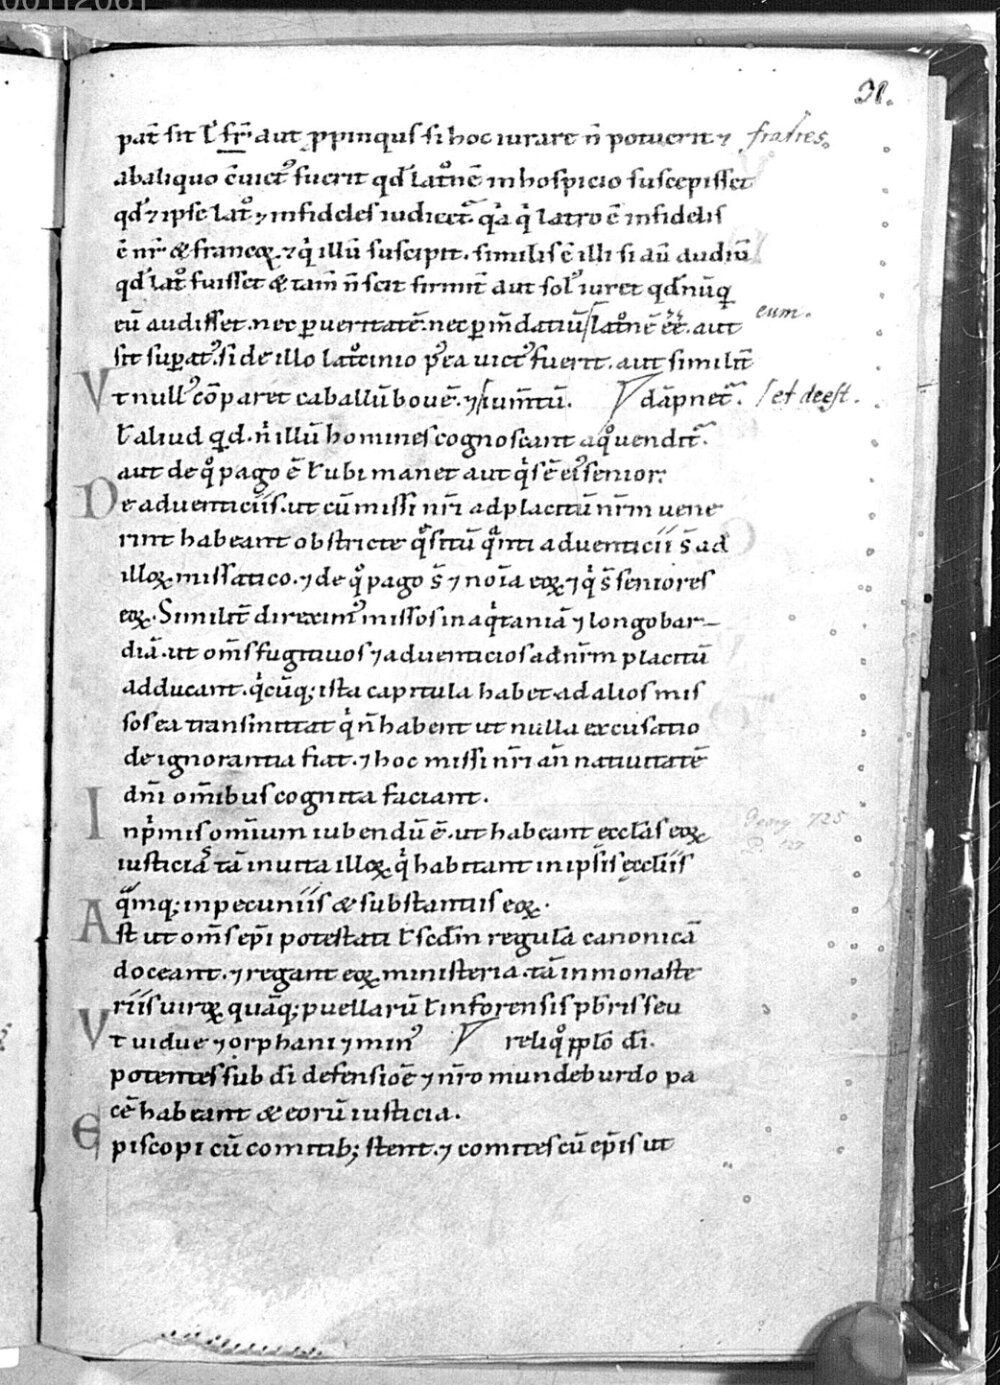 31.
pat̄ sit ł fr̄ aut ꝓpinquſ ſi hoc iurare n̄ potuerit ⁊ fratres.
abaliquo c̄uict᾽ fuerit qđ latͦnē inhoſpicio ſuſcepiſſet
qđ ⁊ ipſe latͦ ⁊ infideleſ iudicet᷑ q̄a qͥ latro ē infideliſ
ē nr̄ & francoꝝ. ⁊ qͥ illū ſuſcipit. ſimiliſ ē illi ſi aū audiū
qđ latͦ fuiſſet & tam̄ n̄ ſcit firmit̄ aut ſol᾽ iuret qđ nūq̄
eū audiſſet. nec ꝑ ueritatē. nec ꝑ m̄datiū latͦnē eē. aut eum.
ſit ſuꝑat᾽. ſi de illo latͦcinio p᾽ea uict᾽ fuerit. aut ſimilit̄
Vt null᾽ cōparet caballū bouē. ⁊ ium̄tū. dāpnet᷑. / et deest.
ł aliud qͥd. n̄ illū homineſ cognoſcant aqͦ uendit᷑.
aut de qͦ pago ē ł ubi manet aut qͥſ ē ei᾽ ſenior.
De aduenticiiſ. ut cū miſſi nr̄i adplacitū nr̄m uene
rint habeant obſtricte qͦſitū qͣnti aduenticii s̄ ad
illoꝝ miſſatico. ⁊ de qͦ pago s̄ ⁊ noīa eoꝝ ⁊ qͥ s̄ ſenioreſ
eoꝝ. Similit̄ direxim᾽ miſſoſ in aqͥtaniā ⁊ longobar-
diā. ut om̄ſ fugitiuoſ ⁊ aduenticioſ adnr̄m placitū
adducant. qͥcūq; iſta capitula habet. ad alioſ miſ
ſoſ ea tranſmittat qͥ n̄ habent ut nulla excuſatio
de ignorantia fiat. ⁊ hoc miſſi nr̄i an̄ natiuitatē
dn̄i om̄ibuſ cognita faciant.
Inp̄miſ om̄ium iubendū ē. ut habeant eccłaſ eoꝝ
iuſticiā tā inuita illoꝝ qͥ habitant in ipſiſ eccłiiſ
qͣmq; inpecuniiſ & ſubſtantiiſ eoꝝ.
Aſt ut om̄ſ ep̄i poteſtati ł ſcđm regulā canonicā
doceant. ⁊ regant eoꝝ miniſteria. tā inmonaſte
riiſ uiroꝝ quāq; puellarū ł in forenſiſ p̄briſ ſeu
Vt uidue ⁊ orphani ⁊ min᾽ reliqͦ ppło dī.
potenteſ ſub dī defenſiōe ⁊ nr̄o mundeburdo pa
cē habeant & eorū iuſticia.
Epiſcopi cū comitib; ſtent. ⁊ comiteſ cū ep̄iſ ut